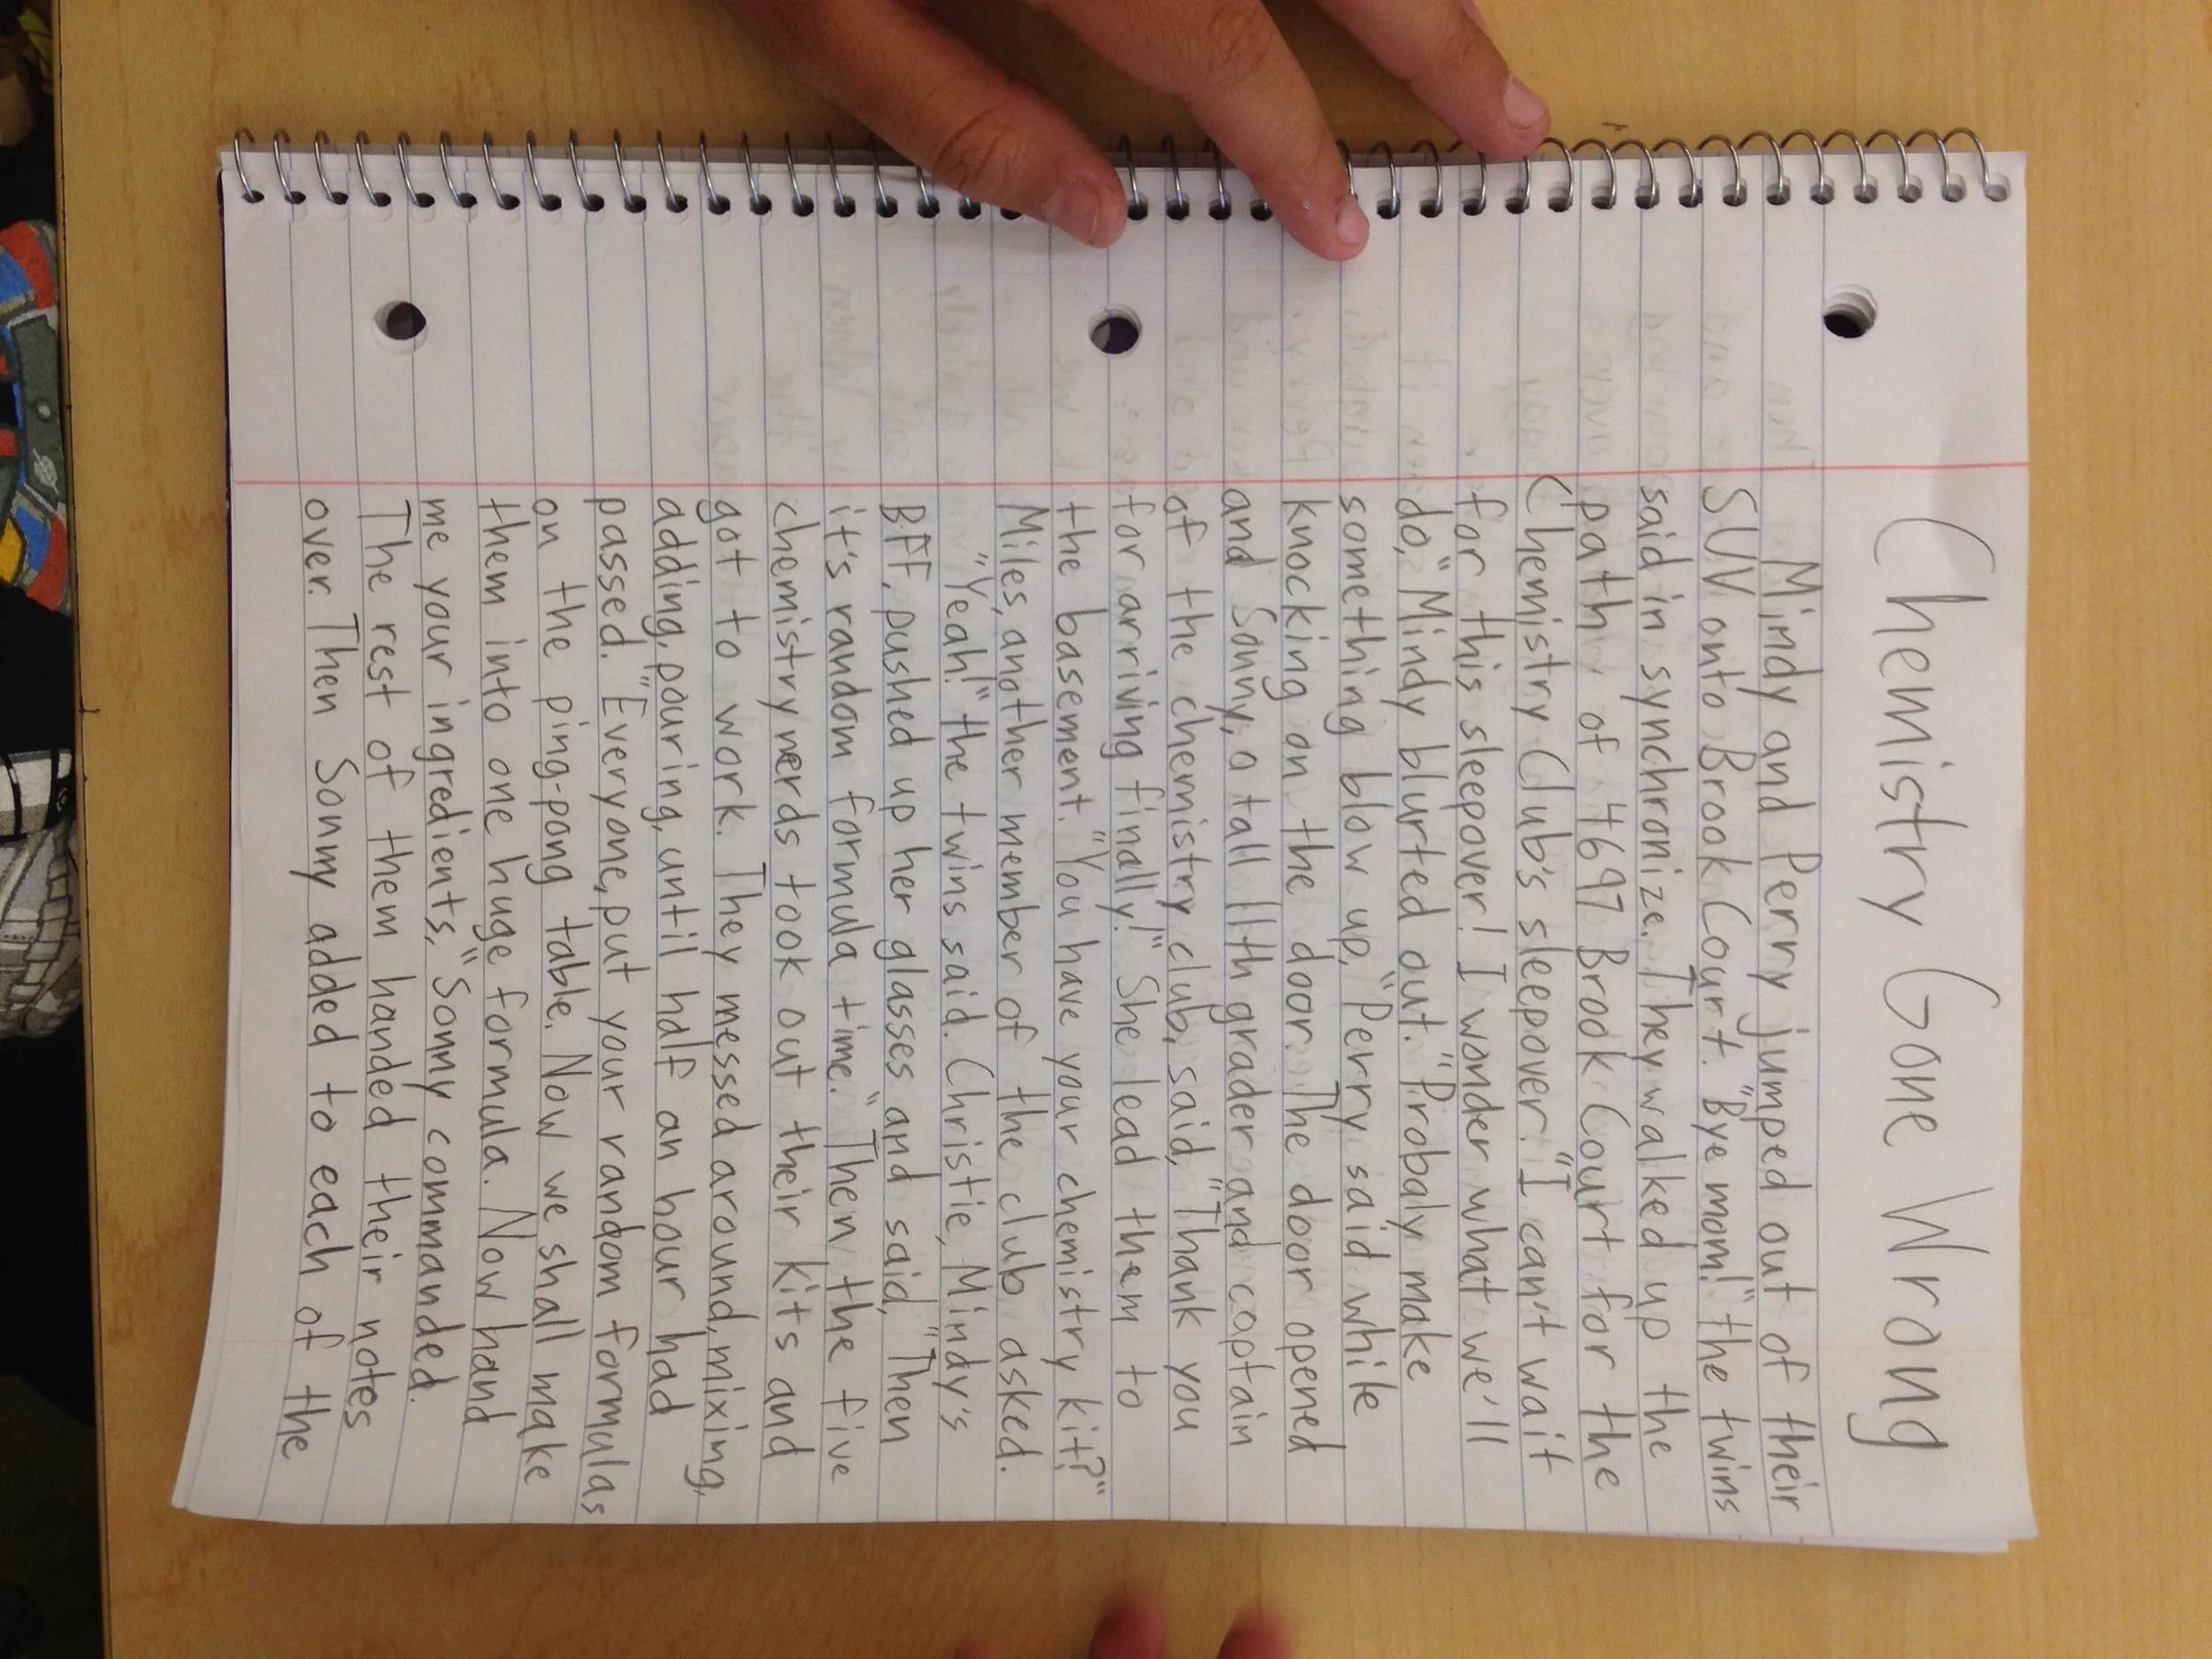 Chemistry Gone Wrong
Mindy and Perry jumped out of their
SUV onto Brook Court. "Bye mom!" the twins
said in synchronize. They walked up the
path of 4697 Brook Court for the
Chemistry Club's sleepover. "I can't wait
for this sleepover! I wonder what we'll
do," Mindy blurted out. "Probaly make
something blow up," Perry said while
knocking on the door. The door opened
and Sonny, a tall 11th grader and captain
of the chemistry club, said, "Thank you
for arriving finally!" She lead them to
the basement. "You have your chemistry kit?"
Miles, another member of the club asked.
"Yeah!" the twins said. Christie, Mindy's
BFF, pushed up her glasses and said, "Then
it's random formula time." Then, the five
chemistry nerds took out their kits and
got to work. They messed around, mixing,
adding, pouring, until half an hour had
passed. "Everyone, put your random formulas
on the ping-pong table. Now we shall make
them into one huge formula. Now hand
me your ingredients," Sonny commanded.
The rest of them handed their notes
over. Then Sonny added to each of the